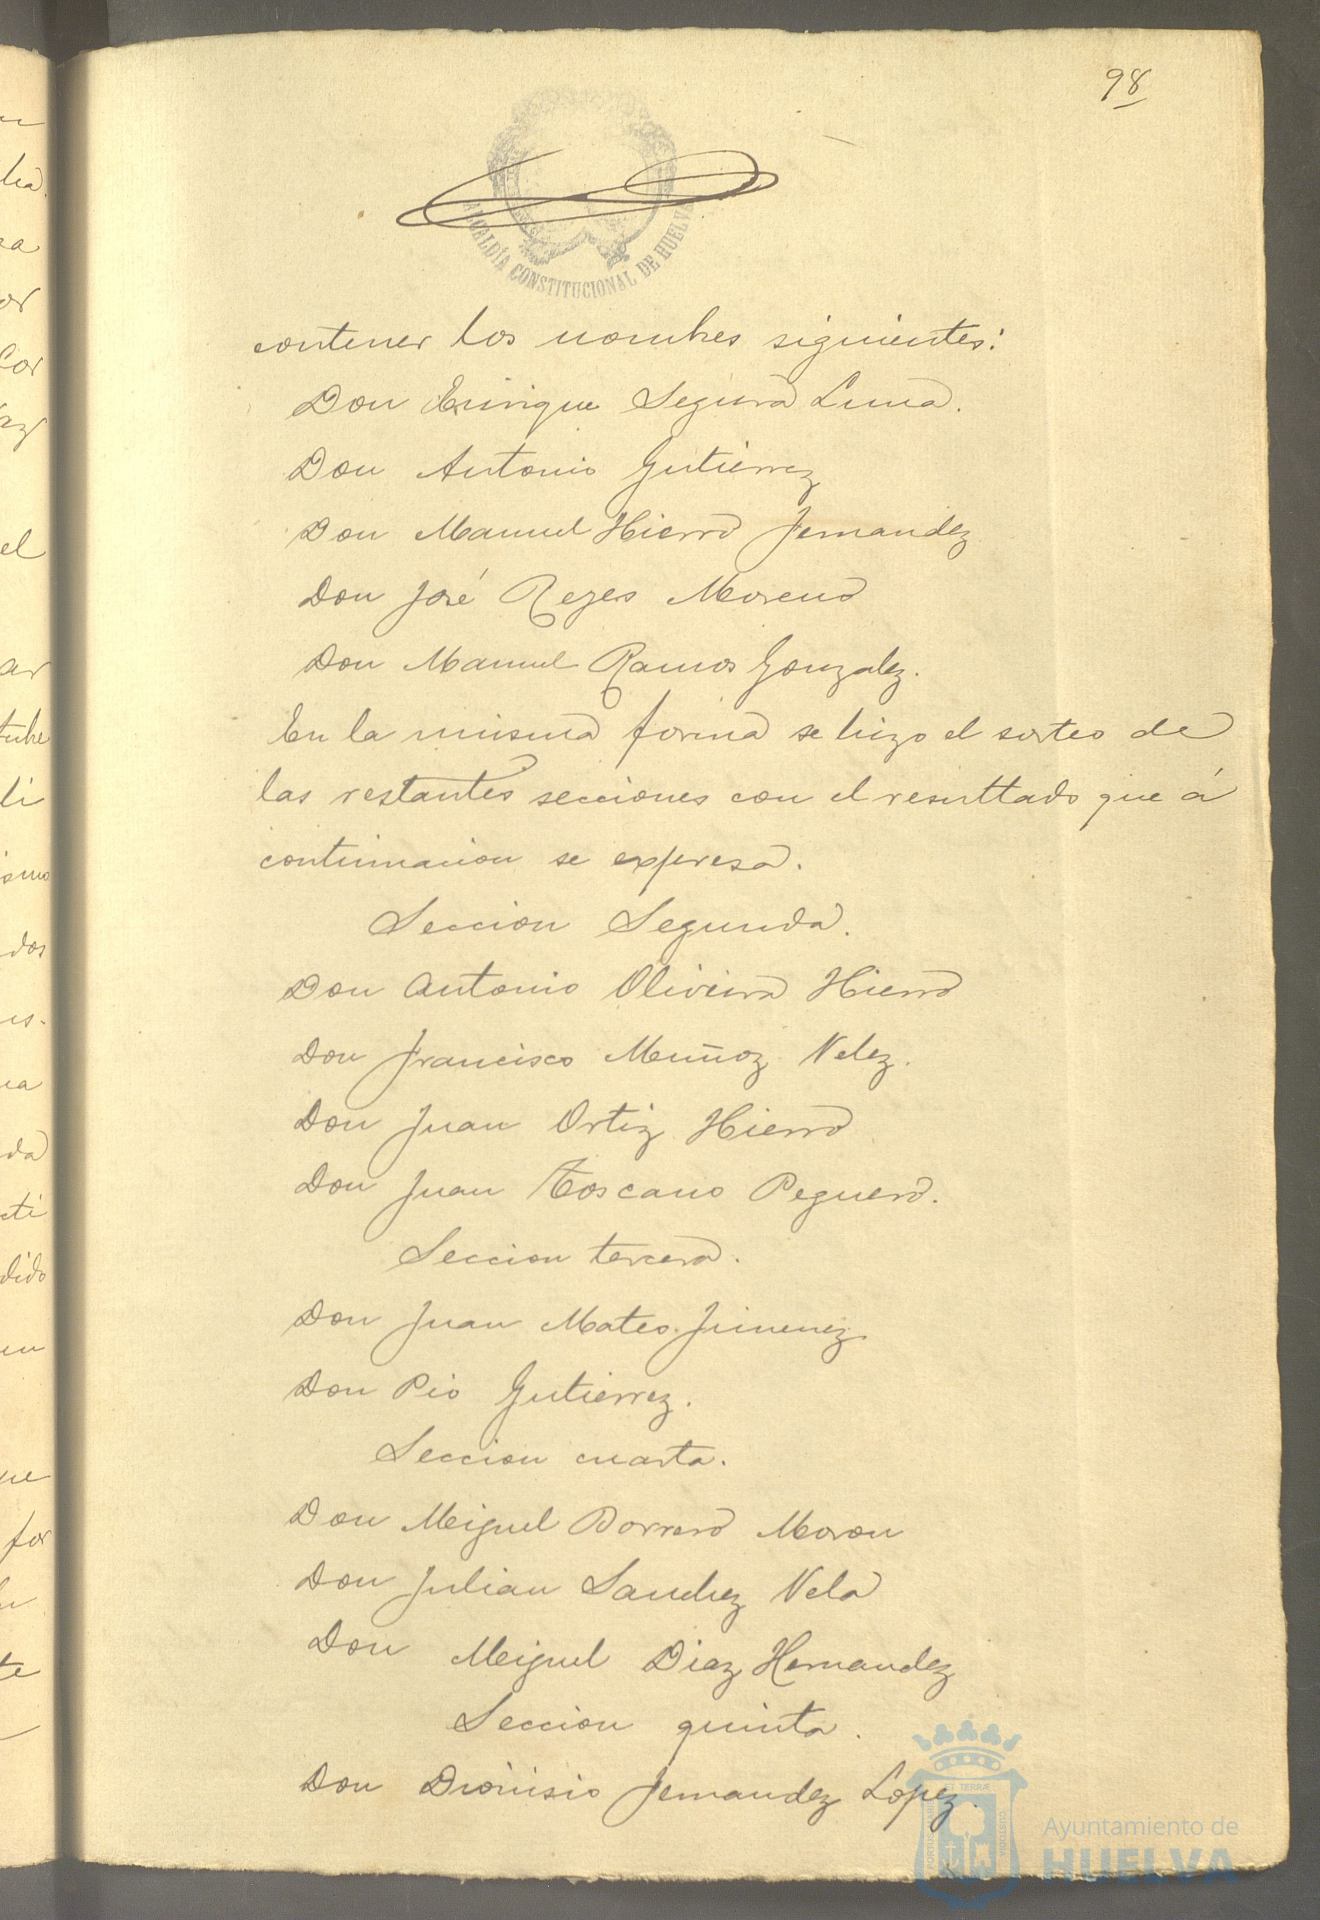 98
ALCALDÍA CONSTITUCIONAL DE HUELVA
contener los nombres siguientes:
Don Enrique Segura Luna.
Don Antonio Gutierrez
Don Manuel Hierro Fernandez
Don José Reyes Moreno
Don Manuel Ramos Gonzalez.
En la misma forma se hizo el sorteo de
las restantes secciones con el resultado que á
continuacion se expresa.
Seccion Segunda.
Don Antonio Oliveira Hierro
Don Francisco Muñoz Velez.
Don Juan Ortiz Hierro
Don Juan Toscano Peguero.
Seccion tercera.
Don Juan Mateo Jimenez
Don Pio Gutierrez.
Seccion cuarta.
Don Miguel Borrero Moron
Don Julian Sanchez Vela
Don Miguel Diaz Hernandez
Seccion quinta.
Don Dionisio Fernandez Lopez.
Ayuntamiento de
HUELVA